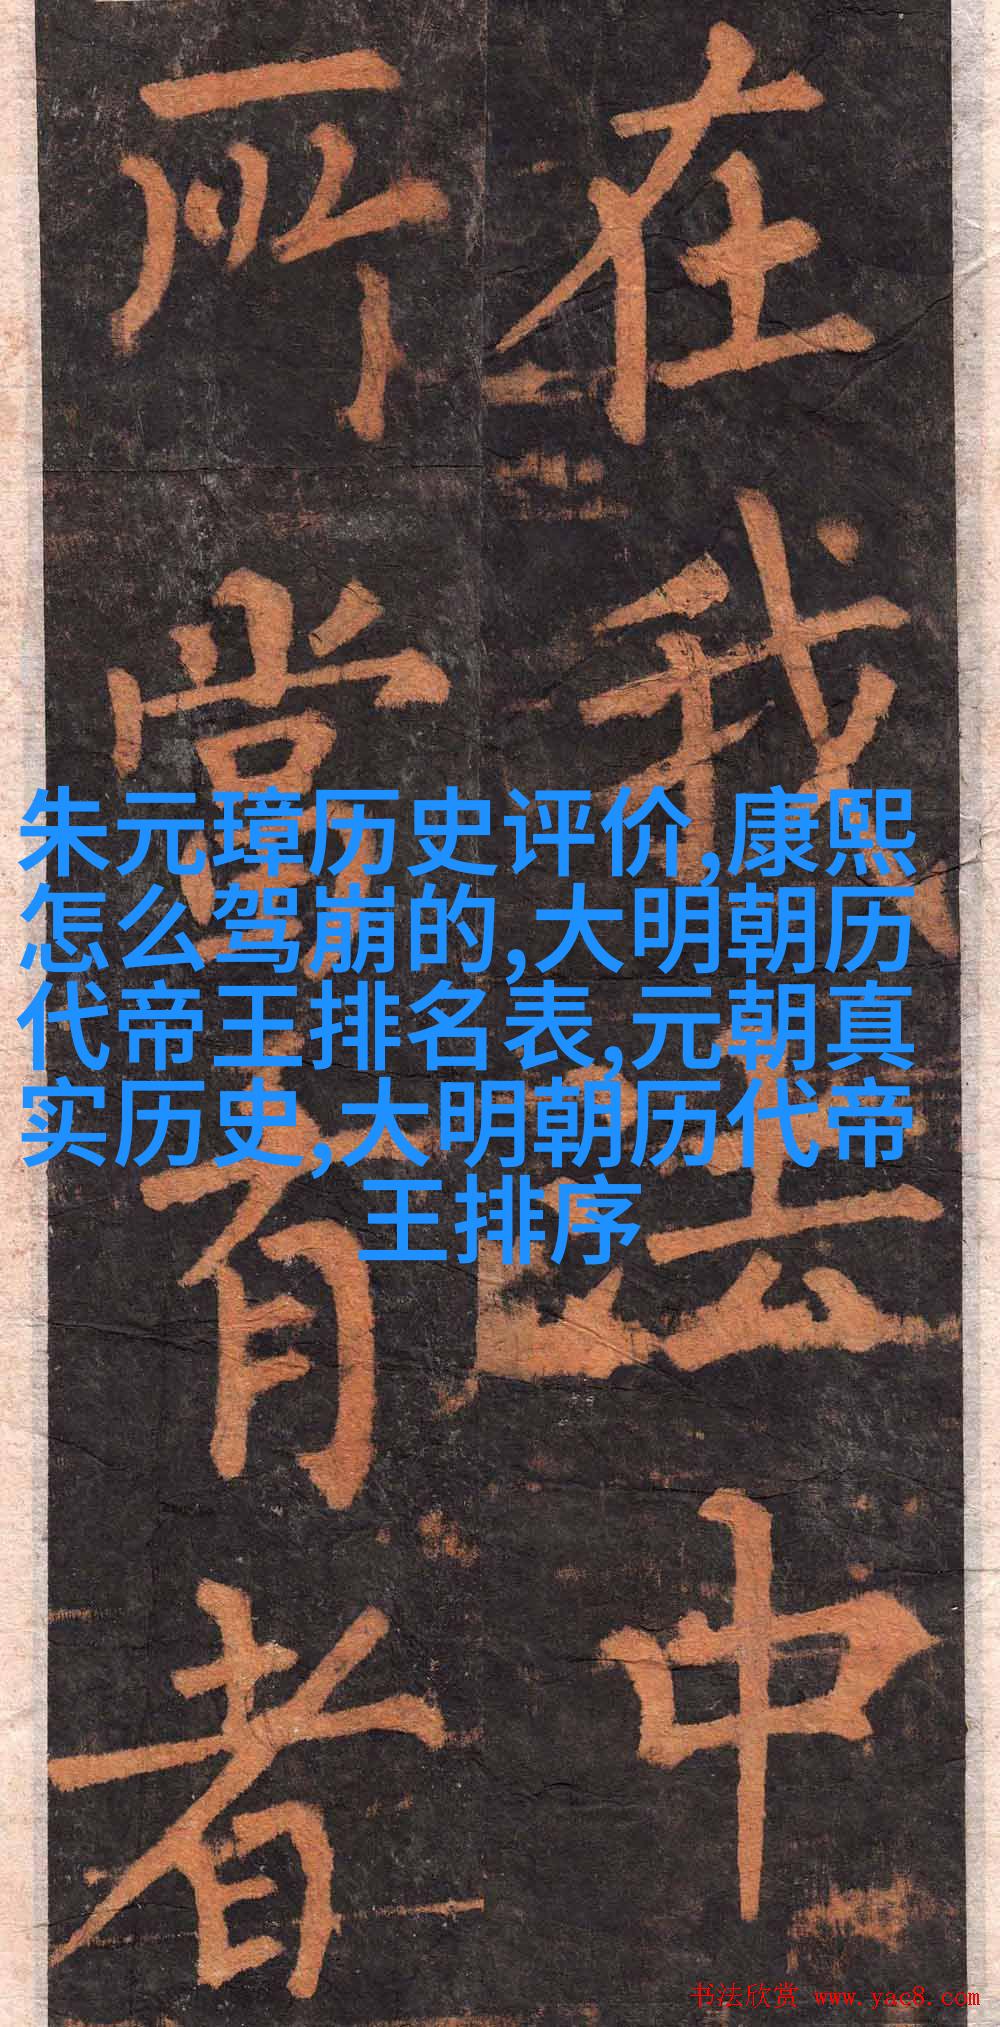 在我法中
所有者
朱元璋历史评价,康熙
怎么驾崩的,大明朝历
代帝王排名表,元朝真
实历史,大明朝历代帝
王排序
书法欣赏 www.yac8.com